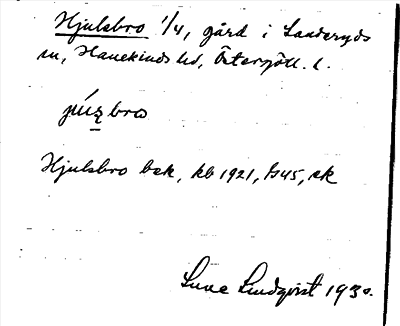 Hjulsbro 1/4, gård i Landeryds
sn, Hanekinds hd, Östergötl. l.
bro
Hjulsbro bek, kb 1921, ek
Sune Lindqvist 1930.